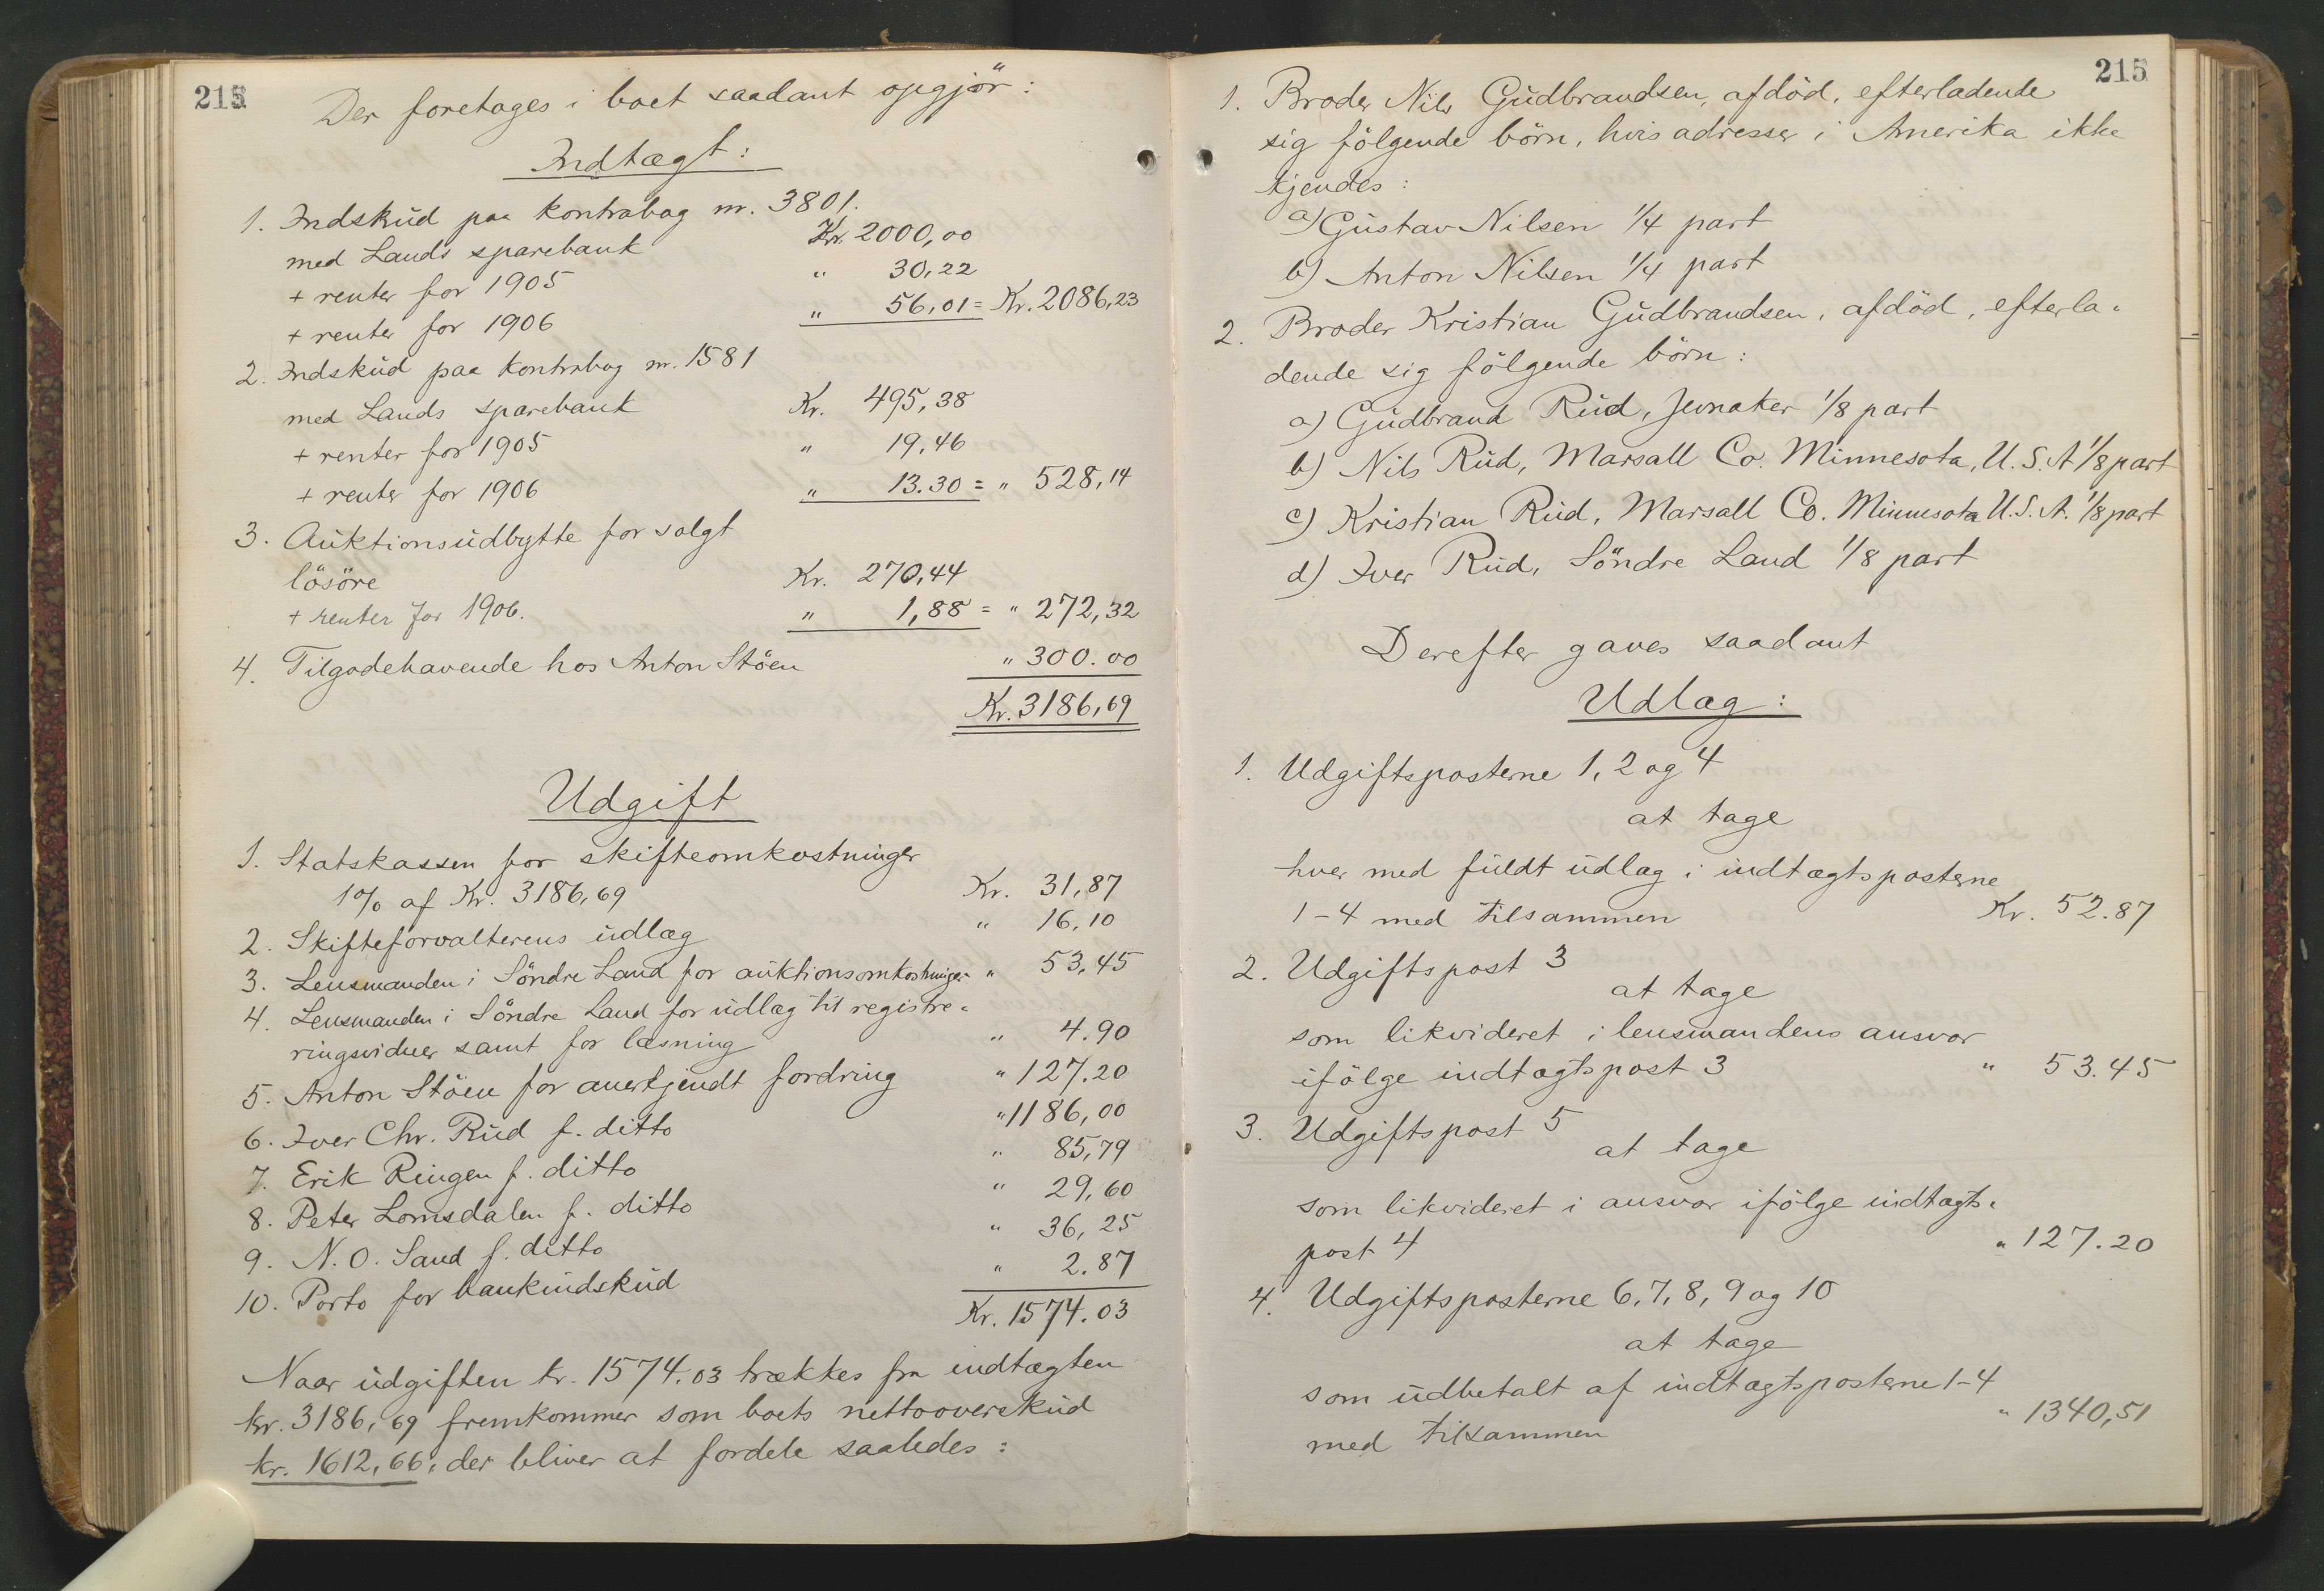 215
Der foretages i boet saadant opgjör:
Indtægt:
1. Indskud paa kontrabog nr. 3801.
med Lands sparebank Kr. 2000,00
+ renter for 1905 " 30,22
+ renter for 1906 " 56,01 = Kr. 2086,23
2. Indskud paa kontrabog nr. 1581
med Lands sparebank Kr. 495,38
+ renter for 1905 " 19,46
+ renter for 1906 " 13.30 = " 528,14
3. Auktionsudbytte for solgt
lösöre Kr. 270,44
+ renter for 1906. " 1,88 = " 272,32
4. Tilgodehavende hos Anton Stöen " 300.00
Kr. 3186,69
Udgift
1. Statskassen for skifteomkostninger
1% af Kr. 3186,69 Kr. 31,87
2. Skifteforvalterens udlæg " 16,10
3. Lensmanden i Söndre Land for auktionsomkostninger " 53,45
4. Lensmanden i Söndre Land for udlæg til registre-
ringsvidner samt for læsning " 4.90
5. Anton Stöen for anerkjendt fordring " 127.20
6. Iver Chr. Rud f. ditto " 1186,00
7. Erik Ringen f. ditto " 85,79
8. Peter Lomsdalen f. ditto " 29,60
9. N. O. Sand f. ditto " 36,25
10. Porto for bankindskud " 2.87
Kr. 1574.03
Naar udgiften kr. 1574.03 trækkes fra indtægten
kr. 3186,69 fremkommer som boets nettooverskud
kr. 1612,66, der bliver at fordele saaledes:
215
1. Broder Nils Gudbrandsen, afdöd, efterladende
sig fölgende börn, hvis adresser i Amerika ikke
kjendes:
a) Gustav Nilsen 1/4 part
b) Anton Nilsen 1/4 part
2. Broder Kristian Gudbrandsen, afdöd, efterla-
dende sig fölgende börn:
a) Gudbrand Rud, Jevnaker 1/8 part
b) Nils Rud, Marsall Co. Minnesota, U.S.A 1/8 part
c) Kristian Rud, Marsall Co. Minnesota U.S.A. 1/8 part
d) Iver Rud, Söndre Land 1/8 part
Derefter gaves saadant
Udlæg:
1. Udgiftsposterne 1, 2 og 4
at tage
hver med fuldt udlæg i indtægtsposterne
1-4 med tilsammen Kr. 52.87
2. Udgiftspost 3
at tage
som likvideret i lensmandens ansvar
ifölge indtægtspost 3 " 53.45
3. Udgiftspost 5
at tage
som likvideret i ansvar ifölge indtægts-
post 4 " 127.20
4. Udgiftsposterne 6, 7, 8, 9 og 10
at tage
som udbetalt af indtægtsposterne 1-4
med tilsammen " 1340,51